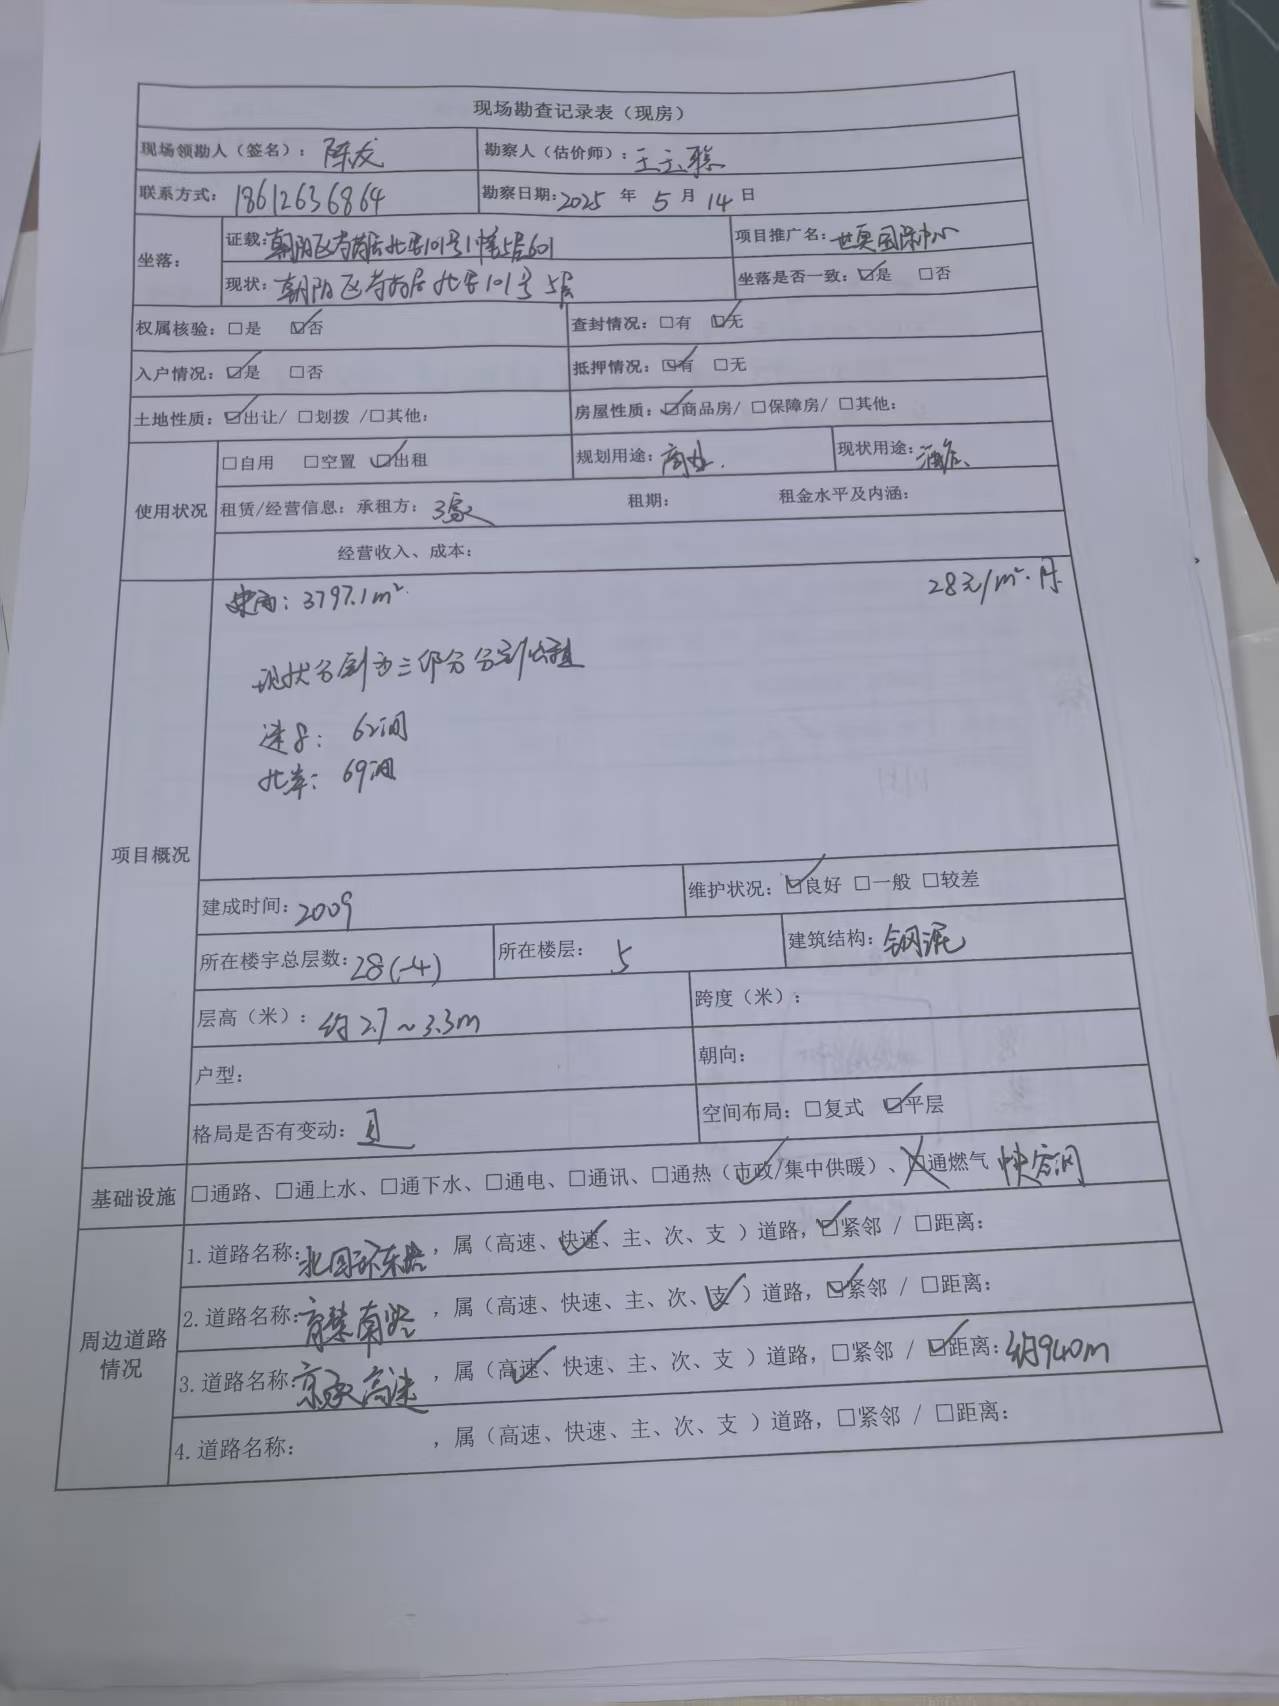 现场勘查记录表（现房）
现场领勘人（签名）：陈龙 勘察人（估价师）：
联系方式：18612636864 勘察日期：2025 年 5 月 14 日
坐落： 证载：朝阳区育慧北里101号1幢5层601 项目推广名：世奥国际中心
现状：朝阳区 北里101号5层 坐落是否一致：☑是 □否
权属核验：□是 ☑否 查封情况：□有 ☑无
入户情况：☑是 □否 抵押情况：☑有 □无
土地性质：☑出让/ □划拨 /□其他： 房屋性质：☑商品房/ □保障房/ □其他：
使用状况 □自用 □空置 ☑出租 规划用途：商业. 现状用途：酒店、
租赁/经营信息：承租方：3家 租期： 租金水平及内涵：
经营收入、成本：
项目概况
建面：3797.1m² 28元/m²·月
现状分割为三部分分别出租
速8：62间
69间
建成时间：2009 维护状况：☑良好 □一般 □较差
所在楼宇总层数：28(-4) 所在楼层：5 建筑结构：钢混
层高（米）：约2.7~3.3m 跨度（米）：
户型： 朝向：
格局是否有变动： 空间布局：□复式 ☑平层
基础设施 □通路、□通上水、□通下水、□通电、□通讯、□通热（市政/集中供暖）、□通燃气
周边道路情况
1.道路名称：北四环东路，属（高速、快速、主、次、支 ）道路，☑紧邻 / □距离：
2.道路名称：育慧南路，属（高速、快速、主、次、支 ）道路，☑紧邻 / □距离：
3.道路名称：京承高速，属（高速、快速、主、次、支 ）道路，□紧邻 / ☑距离：约940m
4.道路名称： ，属（高速、快速、主、次、支 ）道路，□紧邻 / □距离：